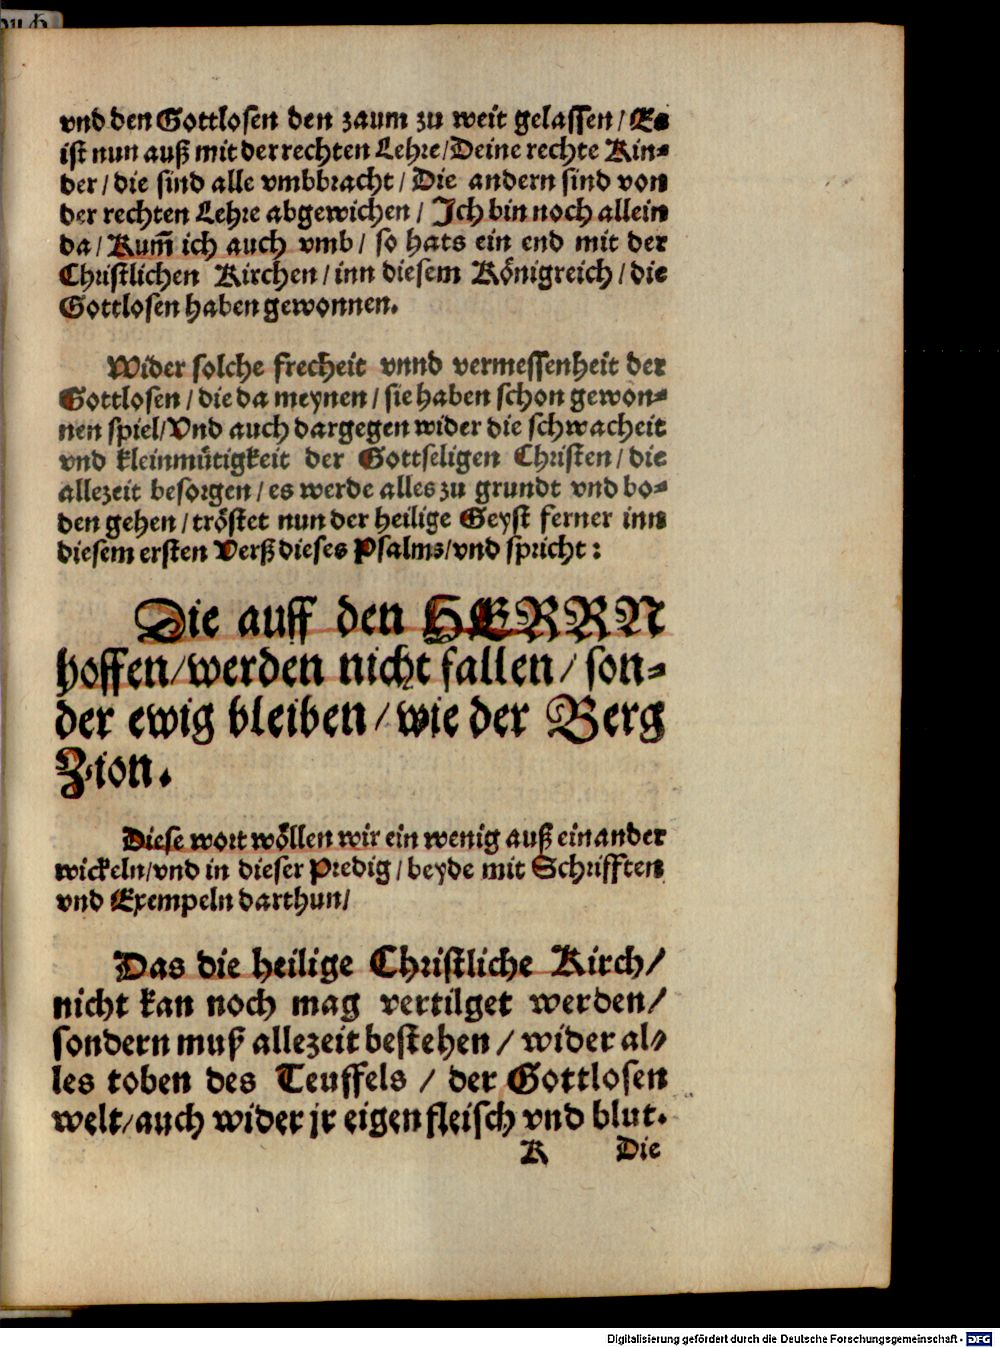 vnd den Gottlosen den zaum zu weit gelassen / Es
ist nun auß mit der rechten Lehre / Deine rechte Kin⸗
der / die sind alle vmbbracht / Die andern sind von
der rechten Lehre abgewichen / Ich bin noch allein
da / Kum̃ ich auch vmb / so hats ein end mit der
Christlichen Kirchen / inn diesem Königreich / die
Gottlosen haben gewonnen.
Wider solche frecheit vnnd vermessenheit der
Gottlosen / die da meynen / sie haben schon gewon⸗
nen spiel / Vnd auch dargegen wider die schwacheit
vnd kleinmütigkeit der Gottseligen Christen / die
allezeit besorgen / es werde alles zu grundt vnd bo⸗
den gehen / tröstet nun der heilige Geyst ferner inn
diesem ersten Verß dieses Psalms / vnd spricht :
Die auff den HERRN
hoffen / werden nicht fallen / son⸗
der ewig bleiben / wie der Berg
Zion.
Diese wort wöllen wir ein wenig auß einander
wickeln / vnd in dieser Predig / beyde mit Schrifften
vnd Exempeln darthun /
Das die heilige Christliche Kirch /
nicht kan noch mag vertilget werden /
sondern muß allezeit bestehen / wider al⸗
les toben des Teuffels / der Gottlosen
welt / auch wider jr eigen fleisch vnd blut.
K Die
Digitalisierung gefördert durch die Deutsche Forschungsgemeinschaft - DFG